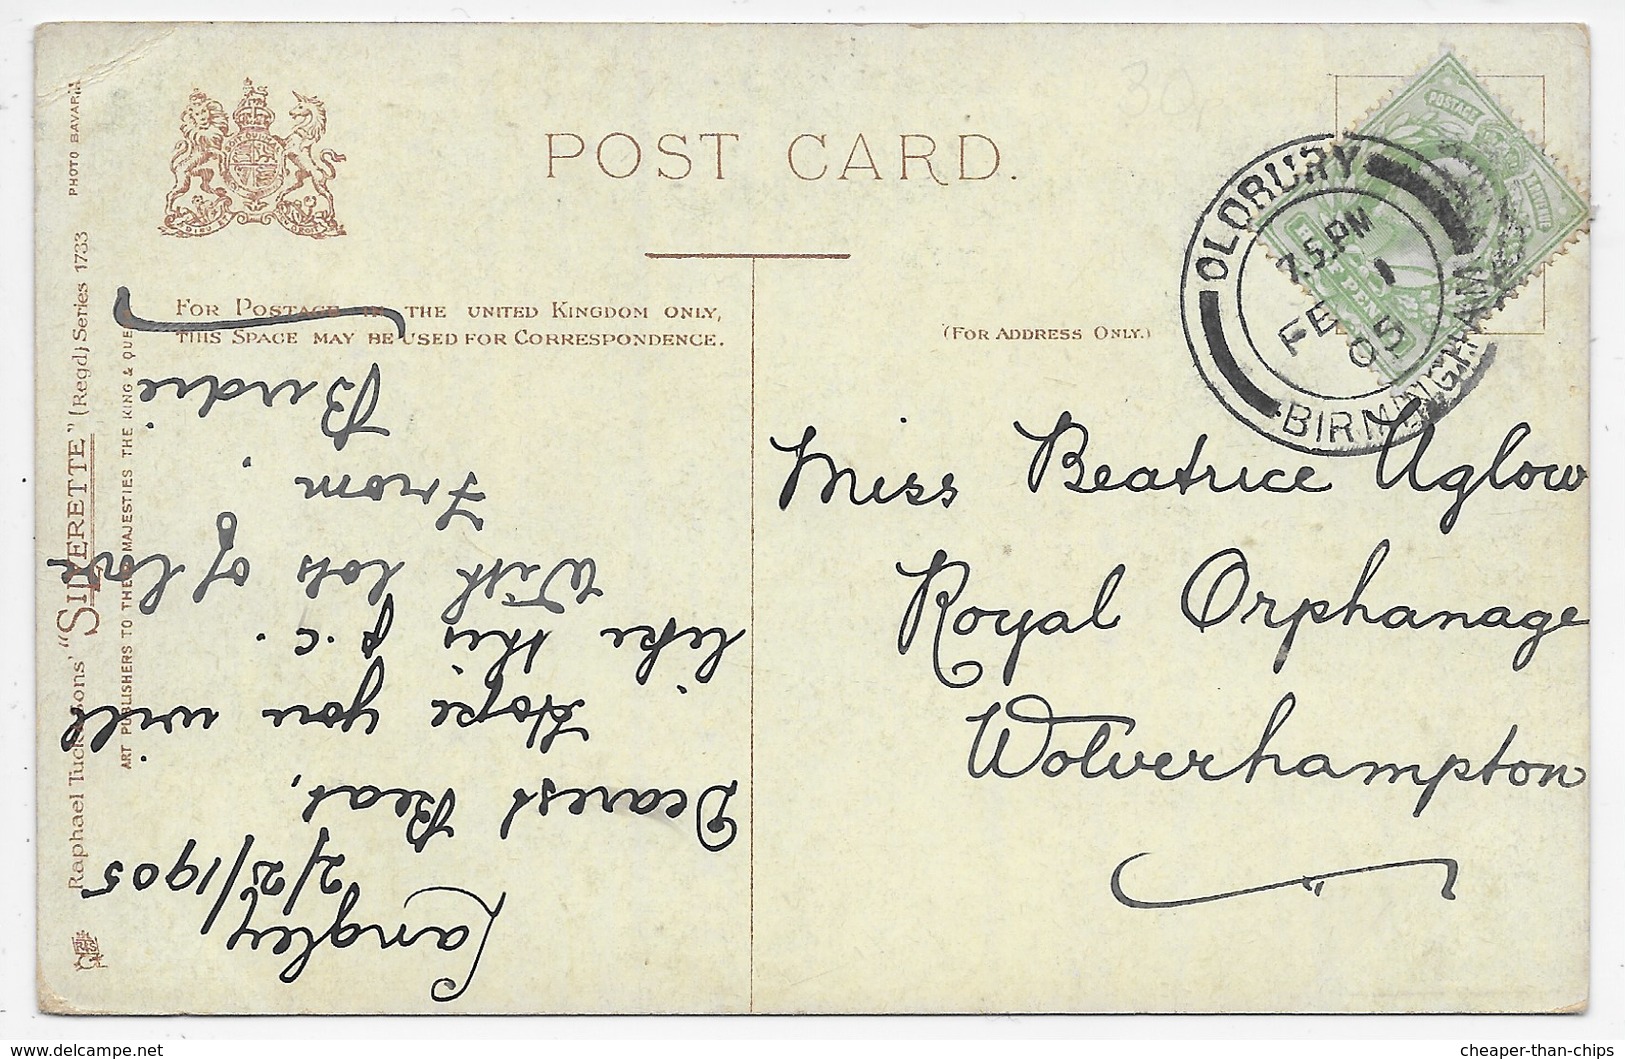 POST CARD.
FOR POSTAGE IN THE UNITED KINGDOM ONLY,
THIS SPACE MAY BE USED FOR CORRESPONDENCE.
(FOR ADDRESS ONLY.)
OLDBURY
7.5.PM
FE 1
05
BIRMINGHAM
POSTAGE
Miss Beatrice Uglow
Royal Orphanage
Wolverhampton
Langley
2/2/1905
Dearest Beat,
Hope you will
like this p.c.
With lots of love
From.
Birdie
Raphael Tuck & Sons' "SILVERETTE" (Regd) Series 1733
PHOTO BAVARIA
ART PUBLISHERS TO THEIR MAJESTIES THE KING & QUEEN
30
cheaper-than-chips
delcampe.net